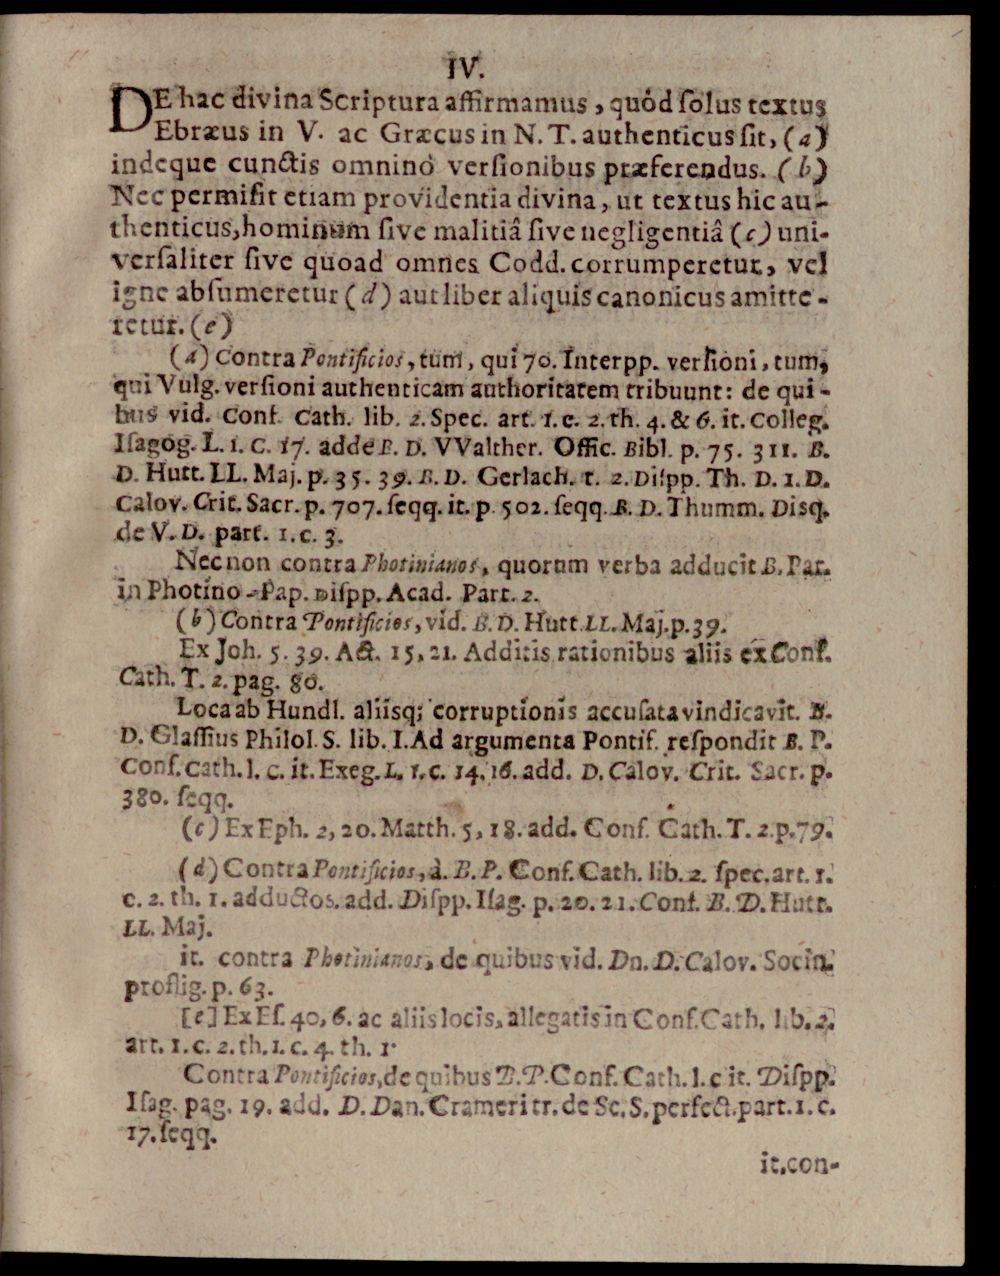 IV.
DE hac divina Scriptura affirmamus, quód ſolus textus
Ebræus in V. ac Græcus in N. T. authenticus ſit, (a)
indeque cunctis omninò verſionibus præferendus. (b)
Nec permiſit etiam providentia divina, ut textus hic au-
thenticus, hominum ſive malitiâ ſive negligentiâ (c) uni-
verſaliter ſive quoad omnes Codd. corrumperetur, vel
igne abſumeretur (d) aut liber aliquis canonicus amitte-
retur. (e)
(a) Contra Pontificios, tùm, qui 70. Interpp. verſioni, tum,
qui Vulg. verſioni authenticam authoritatem tribuunt: de qui-
bus vid. Conf. Cath. lib. 2. Spec. art. 1. c. 2. th. 4. & 6. it. Colleg.
Iſagog. L. 1. C. 17. adde B. D. VValther. Offic. Bibl. p. 75. 311. B.
D. Hutt. LL. Maj. p. 35. 39. B. D. Gerlach. t. 2. Diſpp. Th. D. 1. D.
Calov. Crit. Sacr. p. 707. ſeqq. it. p. 502. ſeqq. B. D. Thumm. Diſq.
de V. D. part. 1. c. 3.
Nec non contra Photinianos, quorum verba adducit B. Pat.
in Photino-Pap. Diſpp. Acad. Part. 2.
(b) Contra Pontificios, vid. B. D. Hutt. LL. Maj. p. 39.
Ex Joh. 5. 39. Act. 15, 21. Additis rationibus aliis ex Conf.
Cath. T. 2. pag. 80.
Loca ab Hundl. aliisq; corruptionis accuſata vindicavit. B.
D. Glaſſius Philol. S. lib. I. Ad argumenta Pontif. reſpondit B. P.
Conf. Cath. l. c. it. Exeg. L. 1. c. 14. 16. add. D. Calov. Crit. Sacr. p.
380. ſeqq.
(c) Ex Eph. 2, 20. Matth. 5, 18. add. Conf. Cath. T. 2. p. 79.
(d) Contra Pontificios, à. B. P. Conf. Cath. lib. 2. ſpec. art. 1.
c. 2. th. 1. adductos. add. Diſpp. Iſag. p. 20. 21. Conf. B. D. Hutt.
LL. Maj.
it. contra Photinianos, de quibus vid. Dn. D. Calov. Socin.
proflig. p. 63.
[e] Ex Eſ. 40, 6. ac aliis locis, allegatis in Conf. Cath. lib. 2.
art. 1. c. 2. th. 1. c. 4. th. 1.
Contra Pontificios, de quibus B. P. Conf. Cath. l. c it. Diſpp.
Iſag. pag. 19. add. D. Dan. Crameri tr. de Sc. S. perfect. part. 1. c.
17. ſeqq.
it. con-